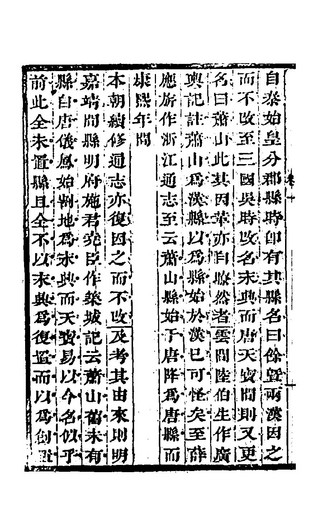 自秦始皇分郡縣時卽有其縣名曰餘曁兩漢因之
而不改至三國吳時改名永興而唐天寶間則又更
名曰蕭山此其因革亦自瞭然者雲間陸伯生作廣
輿記註蕭山爲漢縣以爲縣始於漢已可怪矣至薛
應旂作浙江通志至云蕭山縣始于唐降爲唐縣而
康熙年間
本朝續修通志亦復因之而不改及考其由來則明
嘉靖間縣明府施君堯臣作築城記云蕭山舊未有
縣自唐儀鳳始割地爲永興而天寶易以今名似乎
前此全未置縣且全不以永興爲復置而以爲創置